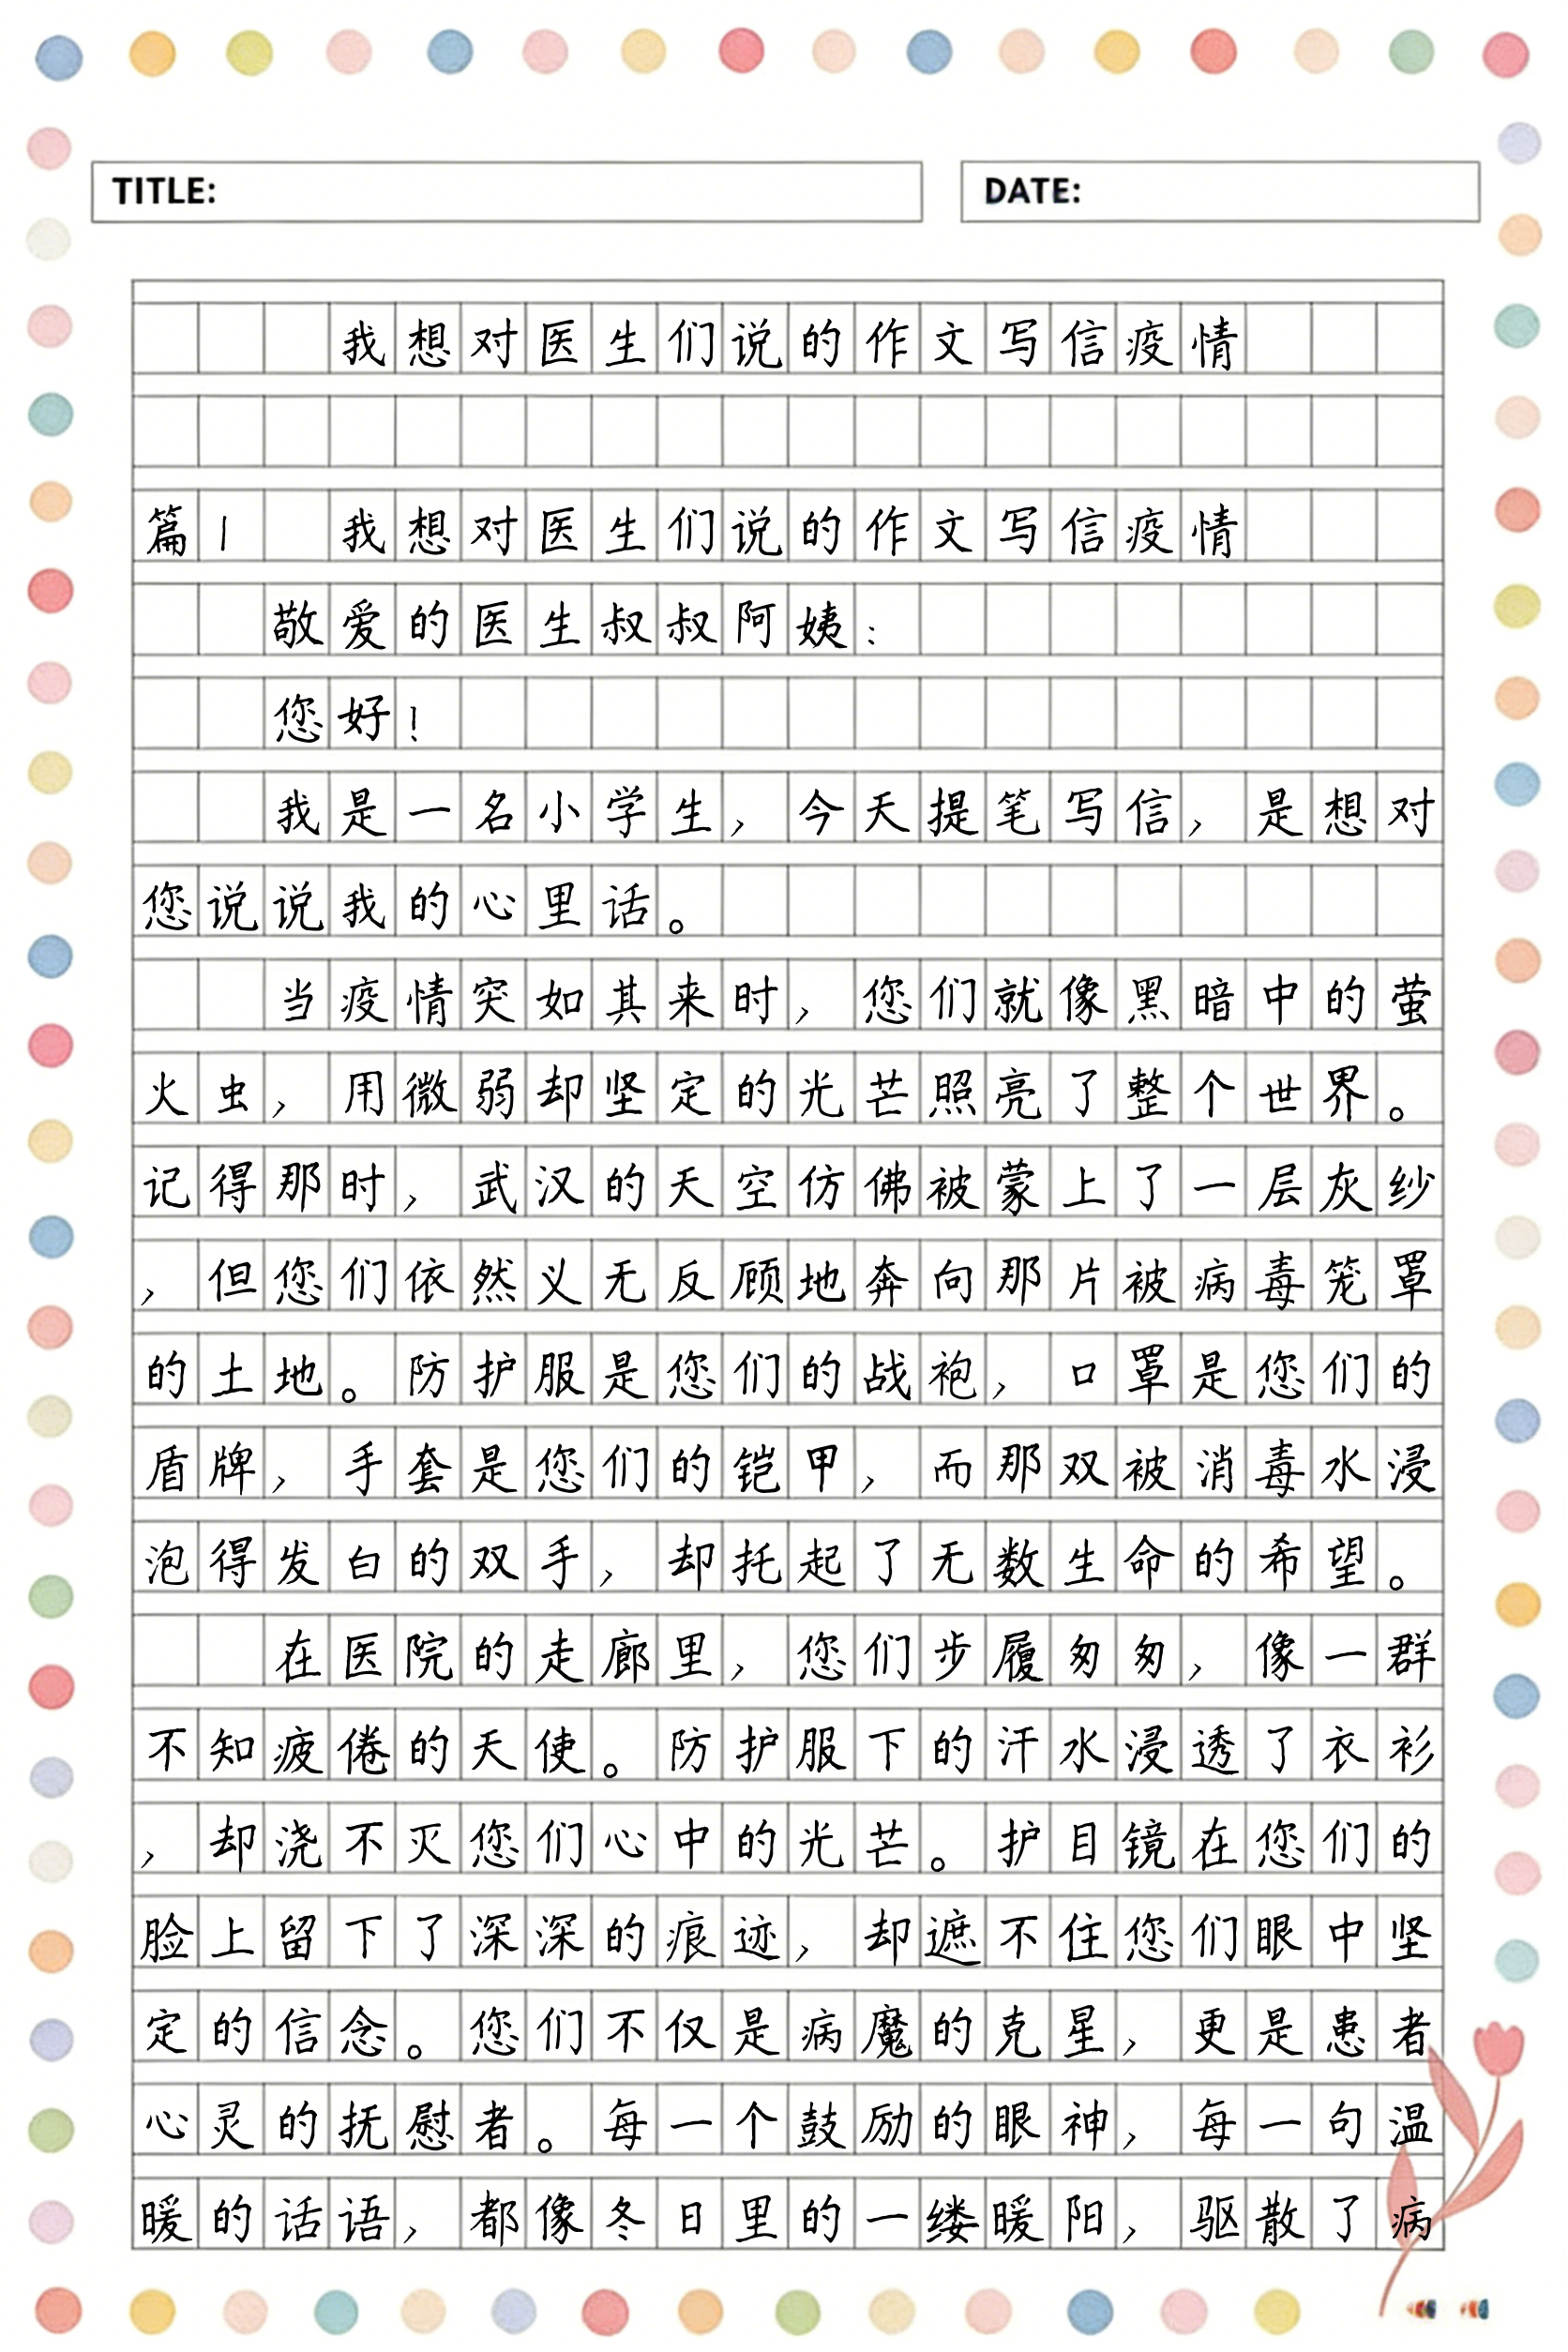 TITLE:
DATE:
我想对医生们说的作文写信疫情
篇1 我想对医生们说的作文写信疫情
敬爱的医生叔叔阿姨：
您好！
我是一名小学生，今天提笔写信，是想对
您说说我的心里话。
当疫情突如其来时，您们就像黑暗中的萤
火虫，用微弱却坚定的光芒照亮了整个世界。
记得那时，武汉的天空仿佛被蒙上了一层灰纱
，但您们依然义无反顾地奔向那片被病毒笼罩
的土地。防护服是您们的战袍，口罩是您们的
盾牌，手套是您们的铠甲，而那双被消毒水浸
泡得发白的双手，却托起了无数生命的希望。
在医院的走廊里，您们步履匆匆，像一群
不知疲倦的天使。防护服下的汗水浸透了衣衫
，却浇不灭您们心中的光芒。护目镜在您们的
脸上留下了深深的痕迹，却遮不住您们眼中坚
定的信念。您们不仅是病魔的克星，更是患者
心灵的抚慰者。每一个鼓励的眼神，每一句温
暖的话语，都像冬日里的一缕暖阳，驱散了病